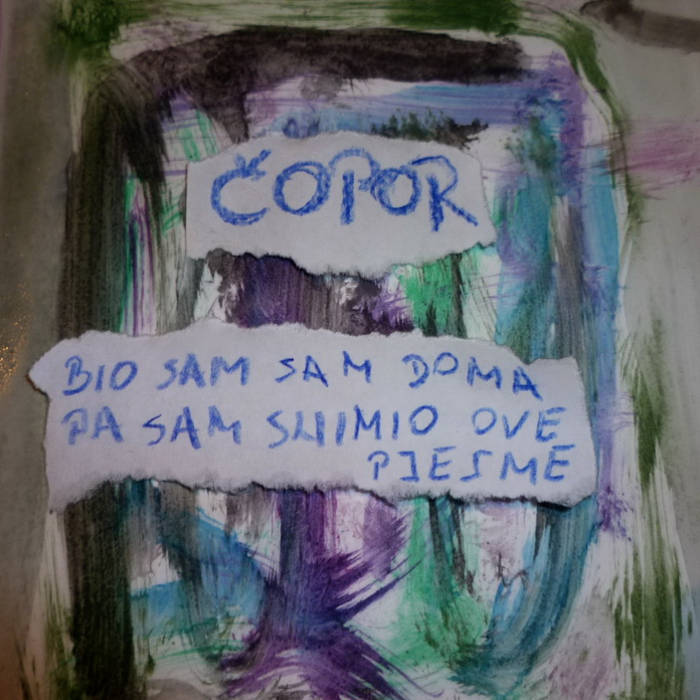 ČOPOR
BIO SAM SAM DOMA
PA SAM SNIMIO OVE
PJESME